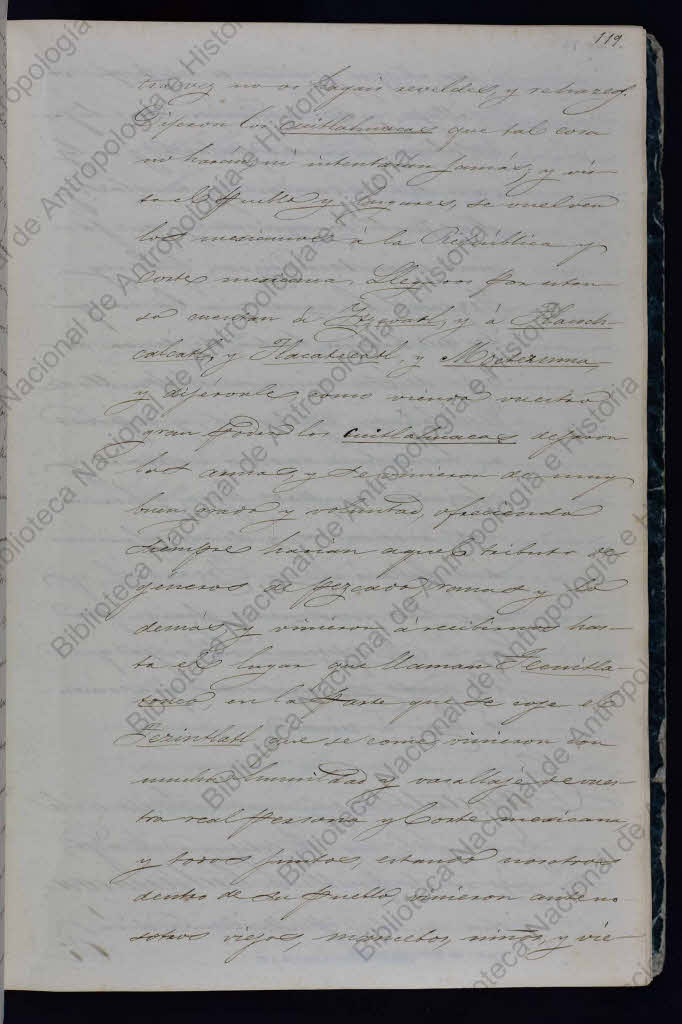 119.
tra vez no os hagais reveldes, y rehazeos.
Dijeron los cuitlahuacas que tal cosa
no harán, ni intentarian jamás, y vis-
to el pueblo y lugares, se vuelven
los mexicanos á la República y
corte mexicana. Llegaron por esten-
so cuentan á Itzcoatl, y á
calcatl, y Tlacateecatl, y Moctezuma,
y dijéronle, como viendo vuestro
gran poder los cuitlahuacas dejaron
las armas, y se vinieron de muy
buen grado y voluntad, ofreciendo
siempre harian aquel tributo de
géneros de pezcado, ranas y lo
demás, y vinieron á recibirnos has-
ta el lugar que llaman Tecuitla-
tonco, en la parte que se coje el
que se come, vinieron con
mucha humildad y vasallaje de vues-
tra real persona y Corte mexicana,
y todos juntos, estando nosotros
dentro de su pueblo, vinieron ante no-
sotros viejos, mancebos, niños, y vie
Biblioteca Nacional de Antropología e Historia